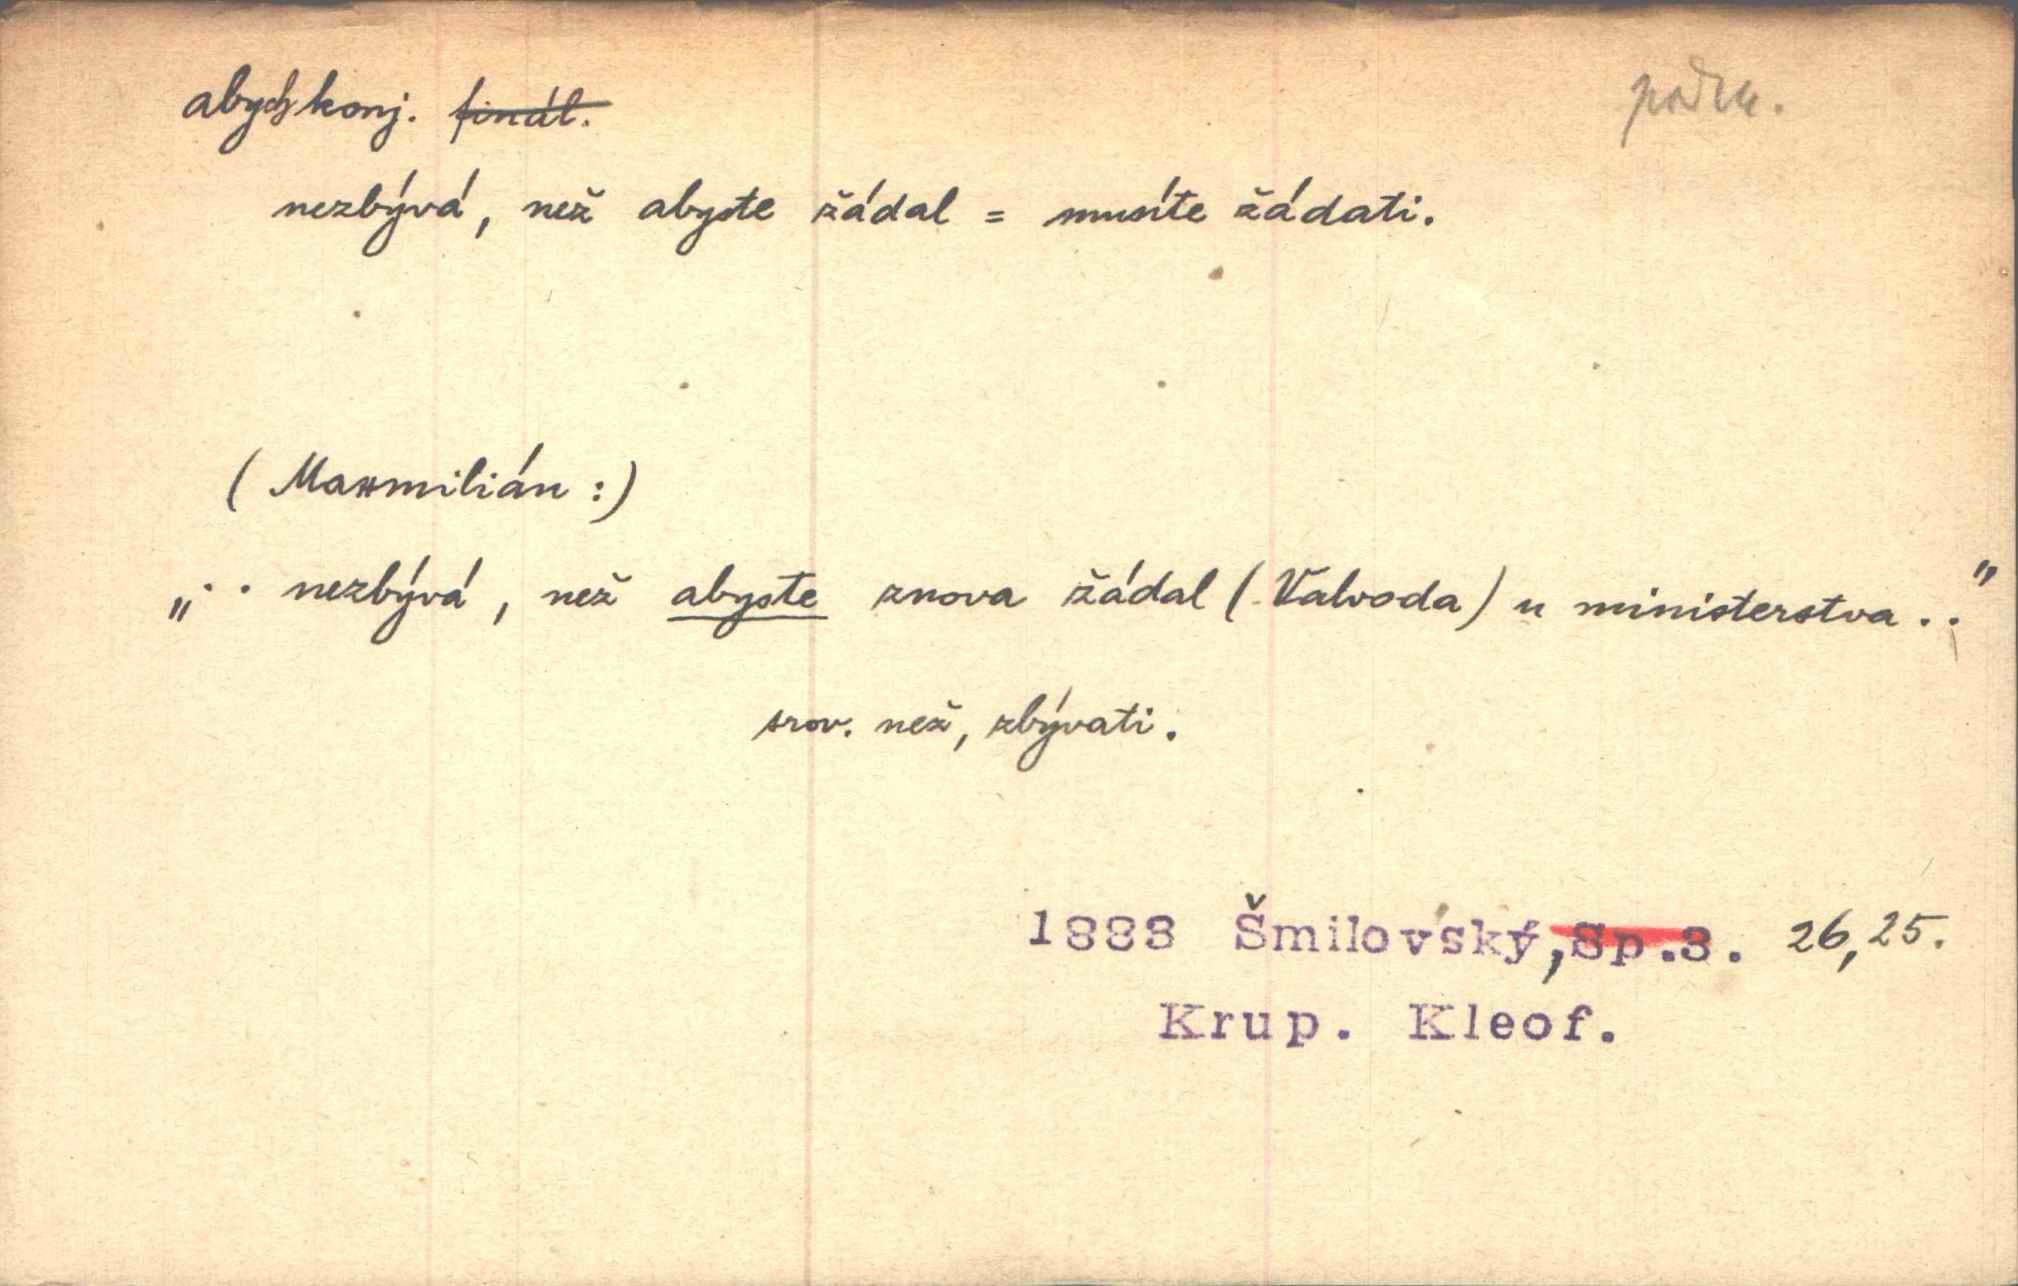 abych konj. finál.
podm.
nezbývá, než abyste žádal = musíte žádati.
(Maxmilián:)
„.. nezbývá, než abyste znova žádal (Valvoda) u ministerstva.."
srov. než, zbývati.
1888 Šmilovský, Sp.3. 26,25.
Krup. Kleof.